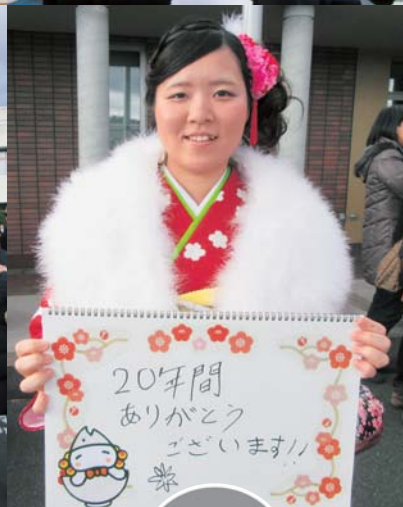 20年間
ありがとう
ございます!!